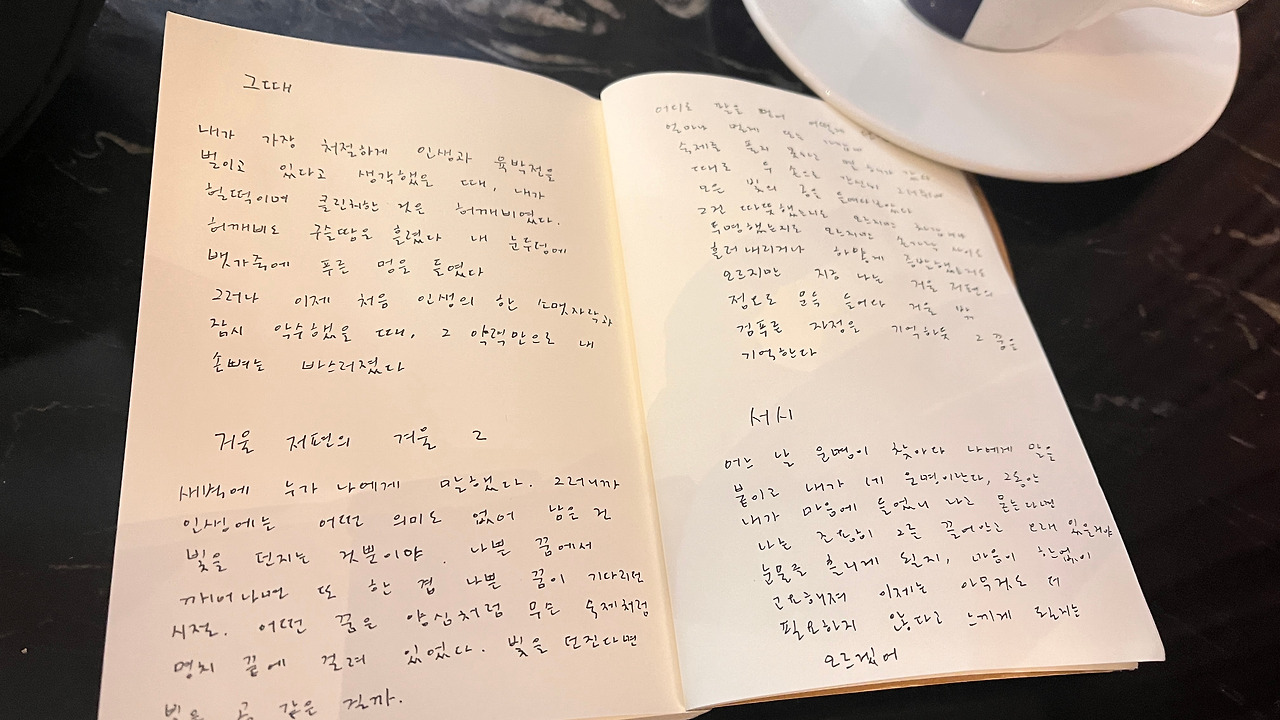 그때
내가 가장 처절하게 인생과 육박전을
벌이고 있다고 생각했을 때, 내가
헐떡이며 클린치한 것은 허깨비였다.
허깨비도 구슬땀을 흘렸다 내 눈두덩에
뱃가죽에 푸른 멍을 들였다
그러나 이제 처음 인생의 한 소맷자락과
잠시 악수했을 때, 그 악력만으로 내
손뼈는 바스러졌다
거울 저편의 겨울 2
새벽에 누가 나에게 말했다. 그러니까
인생에는 어떤 의미도 없어 남은 건
빛을 던지는 것뿐이야. 나쁜 꿈에서
깨어나면 또 한 겹 나쁜 꿈이 기다리던
시절. 어떤 꿈은 양심처럼 무슨 숙제처럼
명치 끝에 걸려 있었다. 빛을 던진다면
빛은 공 같은 걸까.
어디로 팔을 뻗어 어떻게
얼마나 멀게 또는
숙제를 풀지 못하고 몇
때로 두 손으로 간신히 그러쥐어
모은 빛의 공을 들여다보았다
그건 따뜻했는지도 모르지만 차갑거나
투명했는지도 모르지만 손가락 사이로
흘러내리거나 하얗게 증발했는지도
모르지만 지금 나는 거울 저편의
정오로 문득 들어와 거울 밖
검푸른 자정을 기억하듯 그 꿈을
기억한다
서시
어느 날 운명이 찾아와 나에게 말을
붙이고 내가 네 운명이란다, 그동안
내가 마음에 들었니 라고 묻는다면
나는 조용히 그를 끌어안고 오래 있을거야
눈물을 흘리게 될지, 마음이 한없이
고요해져 이제는 아무것도 더
필요하지 않다고 느끼게 될지는
모르겠어